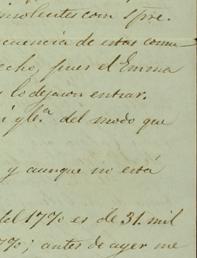 insolentes com spre.
cuencia de estas comu-
echo, pues el Emma
y lo dejaron entrar.
i ygl.ª del modo que
y aunque no está
del 17% es de 31. mil
7%; antes de ayer me